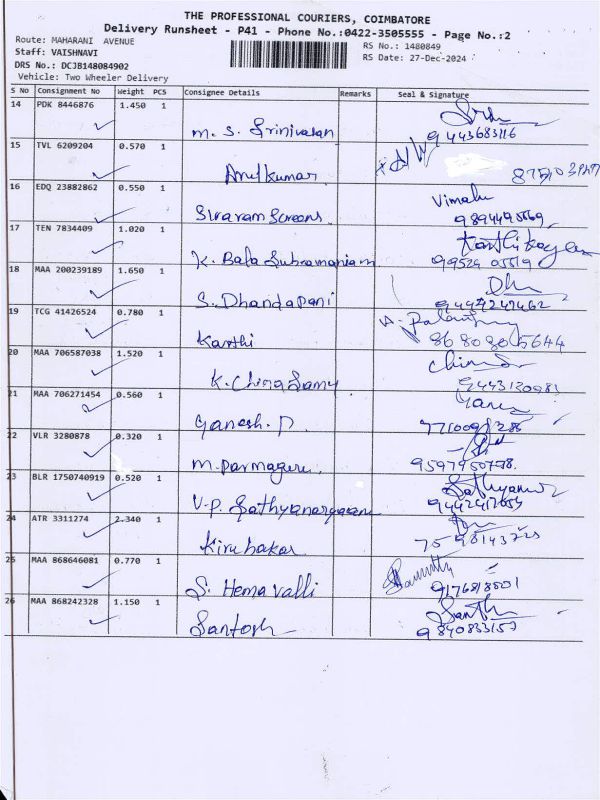 THE PROFESSIONAL COURIERS, COIMBATORE
Delivery Runsheet - P41 - Phone No.:0422-3505555 - Page No.:2
Route: MAHARANI AVENUE
RS No.: 1480849
Staff: VAISHNAVI
RS Date: 27-Dec-2024
DRS No.: DCJB148084902
Vehicle: Two Wheeler Delivery
S No Consignment No Weight PCS Consignee Details Remarks Seal & Signature
14 PDK 8446876 1.450 1
M. S. Srinivasan 9443683116
15 TVL 6209204 0.570 1
Arulkumar
16 EDQ 23882862 0.550 1 Vimala
Sivaram Screens
17 TEN 7834409 1.020 1
K. Bala Subramaniam
18 MAA 200239189 1.650 1
S. Dhandapani
19 TCG 41426524 0.780 1
Karthi
20 MAA 706587038 1.520 1
K. Chinasamy 9443130981
21 MAA 706271454 0.560 1
Ganesh. P
22 VLR 3280878 0.320 1
M. Parmaguru.
23 BLR 1750740919 0.520 1
V.P. Sathyanarayanan
24 ATR 3311274 2.340 1
Kirubakar
25 MAA 868646081 0.770 1
S. Hemavalli
26 MAA 868242328 1.150 1
Santosh 9840833157